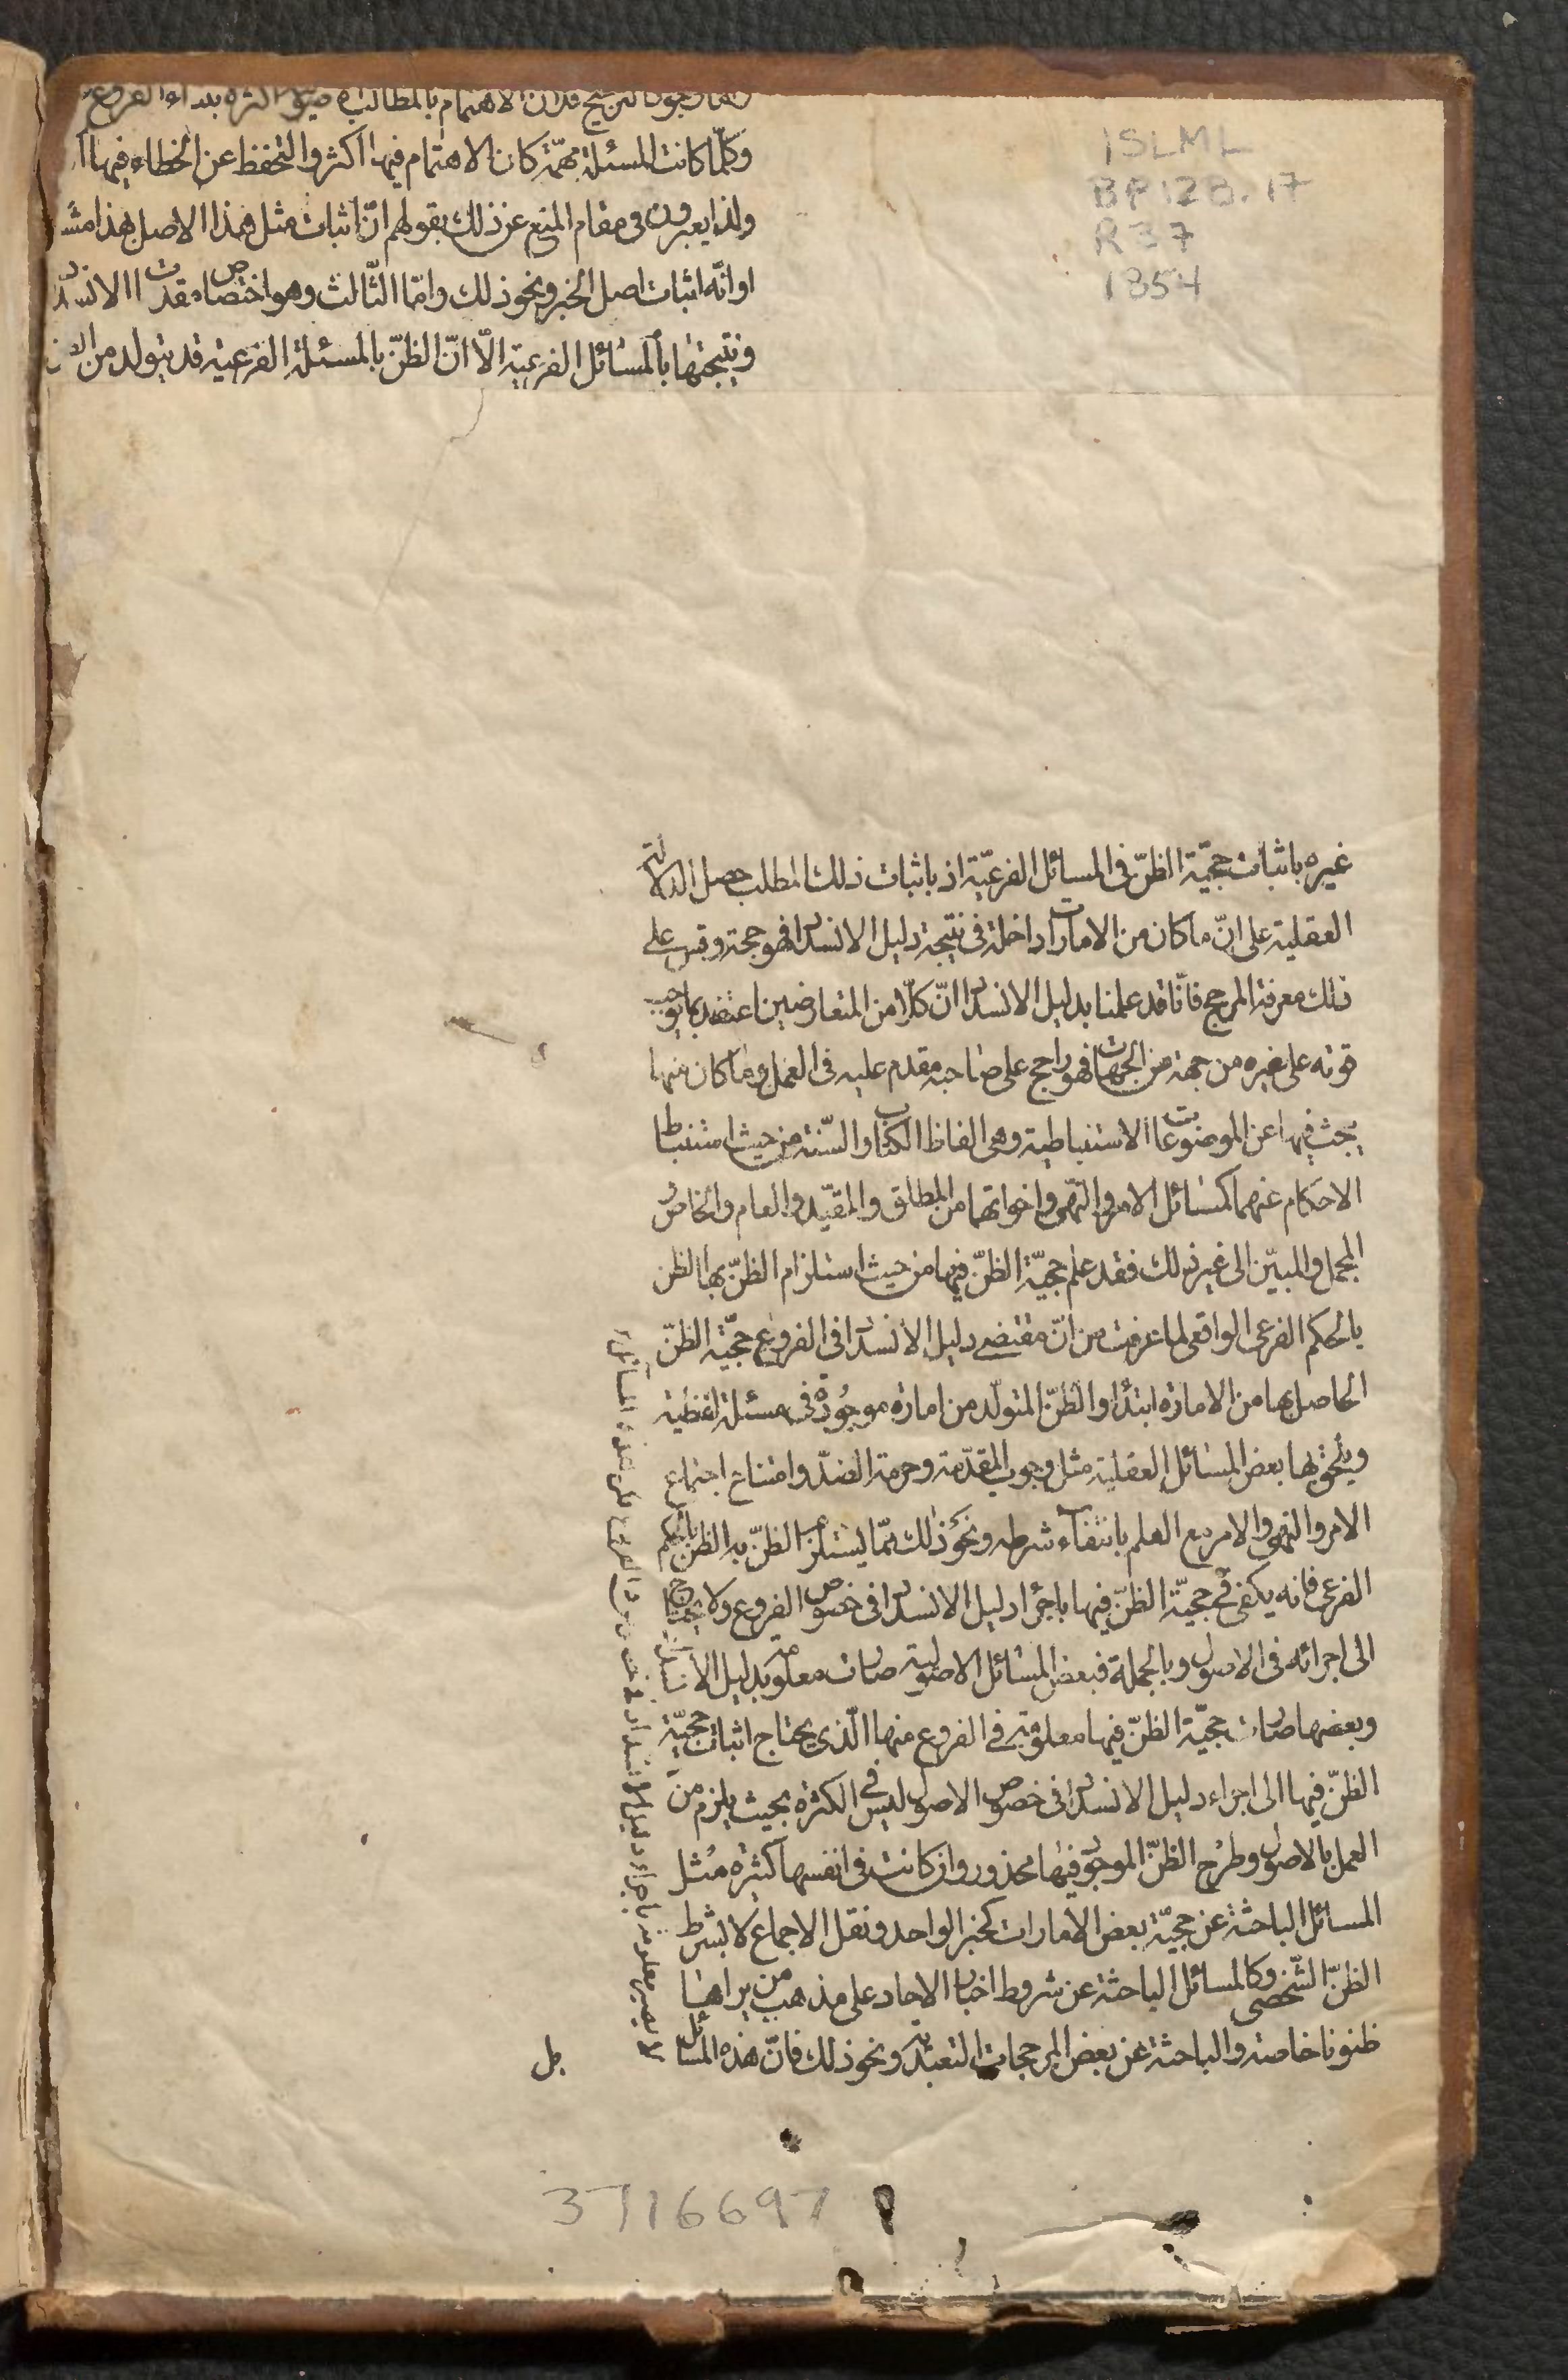 وكلّما كانت المسئلة مهمّة كان الاهتمام فيها اكثر والتحفظ عن الخطاء فيها
ولذا يعبرون فى مقام المنع عن ذلك بقولهم انّ اثبات مثل هذا الاصل بهذا
او انّه اثبات اصل الخبر ونحو ذلك وامّا الثّالث وهو اختصاص مقدمات الانسداد
ونتيجتها بالمسائل الفرعية الّا انّ الظنّ بالمسئلة الفرعية قد يتولد من
ISLML
BP128.17
R37
1854
غيره باثبات حجيّة الظنّ فى المسائل الفرعيّة اذ باثبات ذلك المطلب حصل الدلالة
العقلية على انّ ما كان من الامارات داخلة فى نتيجة دليل الانسداد فهو حجة وقس على
ذلك معرفة المرجح فانّا قد علمنا بدليل الانسداد انّ كلّا من المتعارضين اعتضد بما يوجب
قوته على غيره من جهة من الجهات فهو راجح على صاحبه مقدم عليه فى العمل وما كان منها
يبحث فيها عن الموضوعات الاستنباطية وهى الفاظ الكتاب والسّنة من حيث استنباط
الاحكام عنهما كمسائل الامر والنّهى واخواتهما من المطلق والمقيّد والعام والخاص و
المجمل والمبيّن الى غير ذلك فقد علم حجيّة الظنّ فيها من حيث استلزام الظنّ بها الظن
بالحكم الفرعى الواقعى لما عرفت من انّ مقتضى دليل الانسداد فى الفروع حجيّة الظنّ
الحاصل بها من الامارة ابتداء والظنّ المتولّد من امارة موجودة فى مسئلة لفظية
ويلحق بها بعض المسائل العقلية مثل وجوب المقدّمة وحرمة الضدّ وامتناع اجتماع
الامر والنهى والامر مع العلم بانتفاء شرطه ونحو ذلك ممّا يستلزم الظنّ به الظن بالحكم
الفرعى فانه يكفى فى حجيّة الظنّ فيها باجراء دليل الانسداد فى خصوص الفروع ولا يحتاج
الى اجرائه فى الاصول وبالجملة فبعض المسائل الاصولية صارت معلومة بدليل الانسداد
وبعضها صارت حجيّة الظنّ فيها معلومة فى الفروع منها الّذى يحتاج اثبات حجيّة
الظنّ فيها الى اجراء دليل الانسداد فى خصوص الاصول ليس فى الكثرة بحيث يلزم من
العمل بالاصول وطرح الظنّ الموجود فيها محذور وان كانت فى انفسها كثيرة مثل
المسائل الباحثة عن حجيّة بعض الامارات كخبر الواحد ونقل الاجماع لا بشرط
الظنّ الشّخصى وكالمسائل الباحثة عن شروط اخبار الاحاد على مذهب من يراها
ظنونا خاصة والباحثة عن بعض المرجحات التعبّدية ونحو ذلك فانّ هذه المسائل
بل
3716697